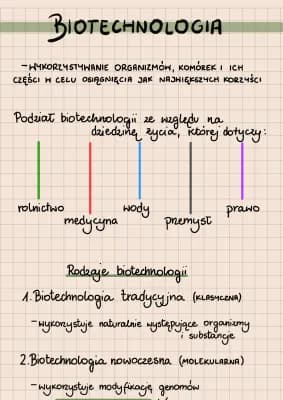 BIOTECHNOLOGIA
-WYKORZYSTYWANIE ORGANIZMÓW, KOMÓREK I ICH
CZĘŚCI W CELU OSIĄGNIĘCIA JAK NAJWIĘKSZYCH KORZYŚCI
Podział biotechnologii ze względu na
dziedzinę życia, której dotyczy:
rolnictwo
medycyna
wody
przemysł
prawo
Rodzaje biotechnologii
1. Biotechnologia tradycyjna (KLASYCZNA)
-wykorzystuje naturalnie występujące organizmy
i substancje
2. Biotechnologia nowoczesna (MOLEKULARNA)
-wykorzystuje modyfikację genomów